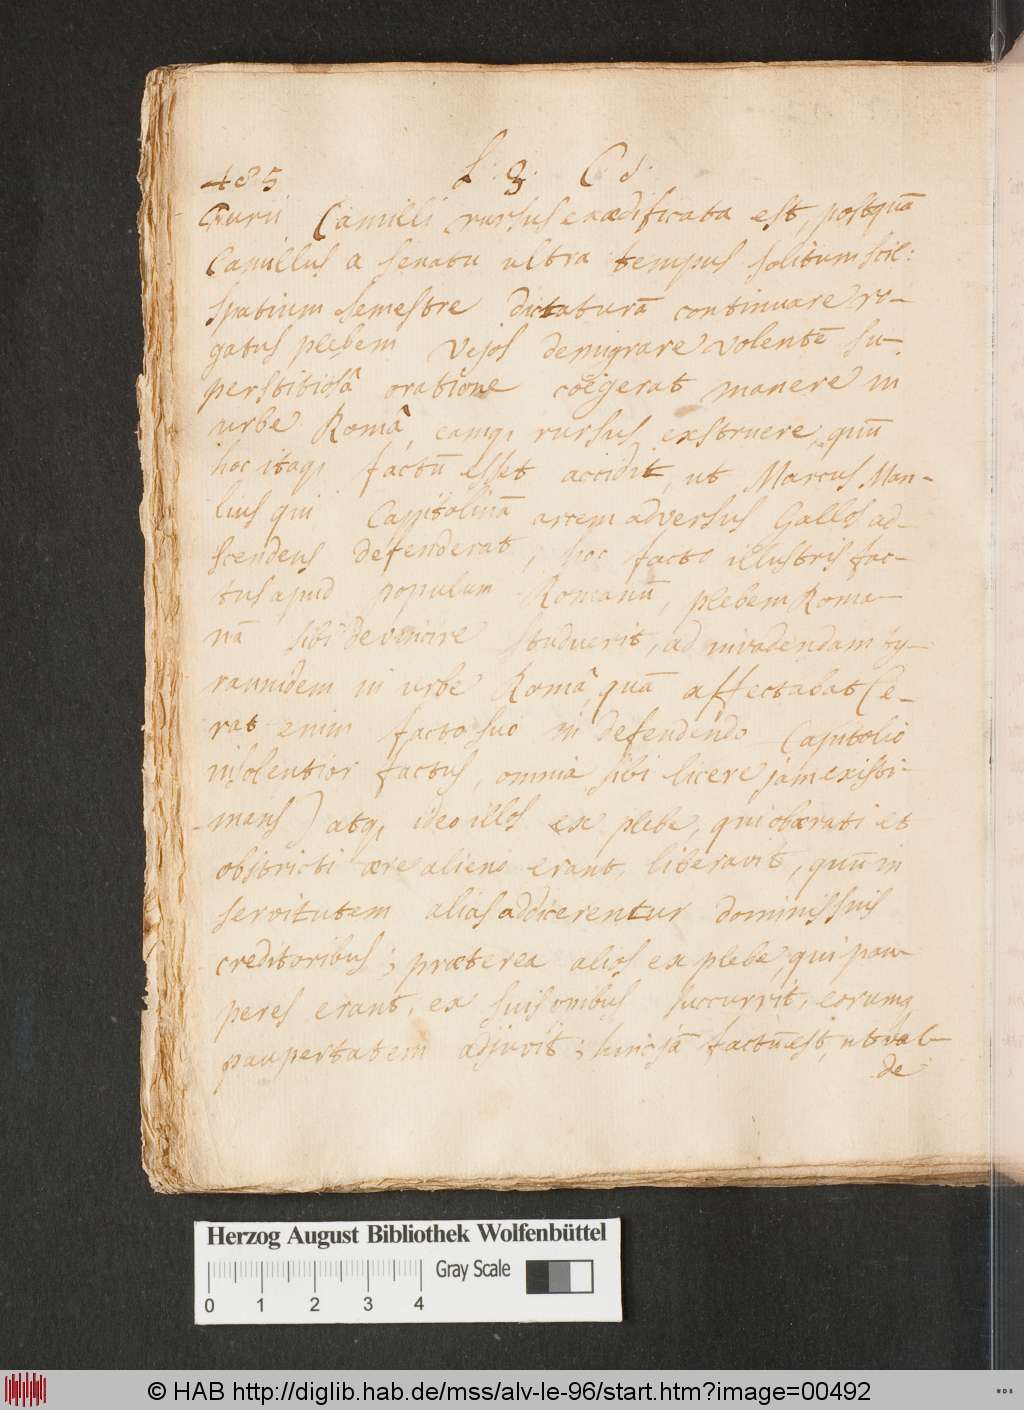 485 L. 3. C d.
Furii Camilli rursus exædificata est, postquā
Camillus a senatu ultra tempus solitum scil:
spatium semestre dictaturā continuare ro-
gatus plebem Vejos demigrare volentē su-
perstitiosâ oratione coëgerat manere in
urbe Româ, eamq, rursus exstruere, quū
hoc itaq, factū esset accidit, ut Marcus Man-
lius qui Capitolinā arcem adversus Gallos ad-
scendens defenderat, hoc facto illustris fac-
tus apud populum Romanū, plebem Roma-
nā sibi devincire studuerit, ad invadendam ty-
rannidem in urbe Româ, quā affectabat (e-
rat enim facto suo in defendendo Capitolio
insolentior factus, omnia sibi licere jam existi-
mans) atq, ideo illos ex plebe, qui obærati et
obstricti ære alieno erant, liberavit, quū in
servitutem alias addicerentur dominis suis
creditoribus; præterea alios ex plebe, qui pau-
peres erant, ex suis opibus succurrit, eorumq,
paupertatem adjuvit; hinc jā factū est, ut val-
de
Herzog August Bibliothek Wolfenbüttel
Gray Scale
0 1 2 3 4
© HAB http://diglib.hab.de/mss/alv-le-96/start.htm?image=00492